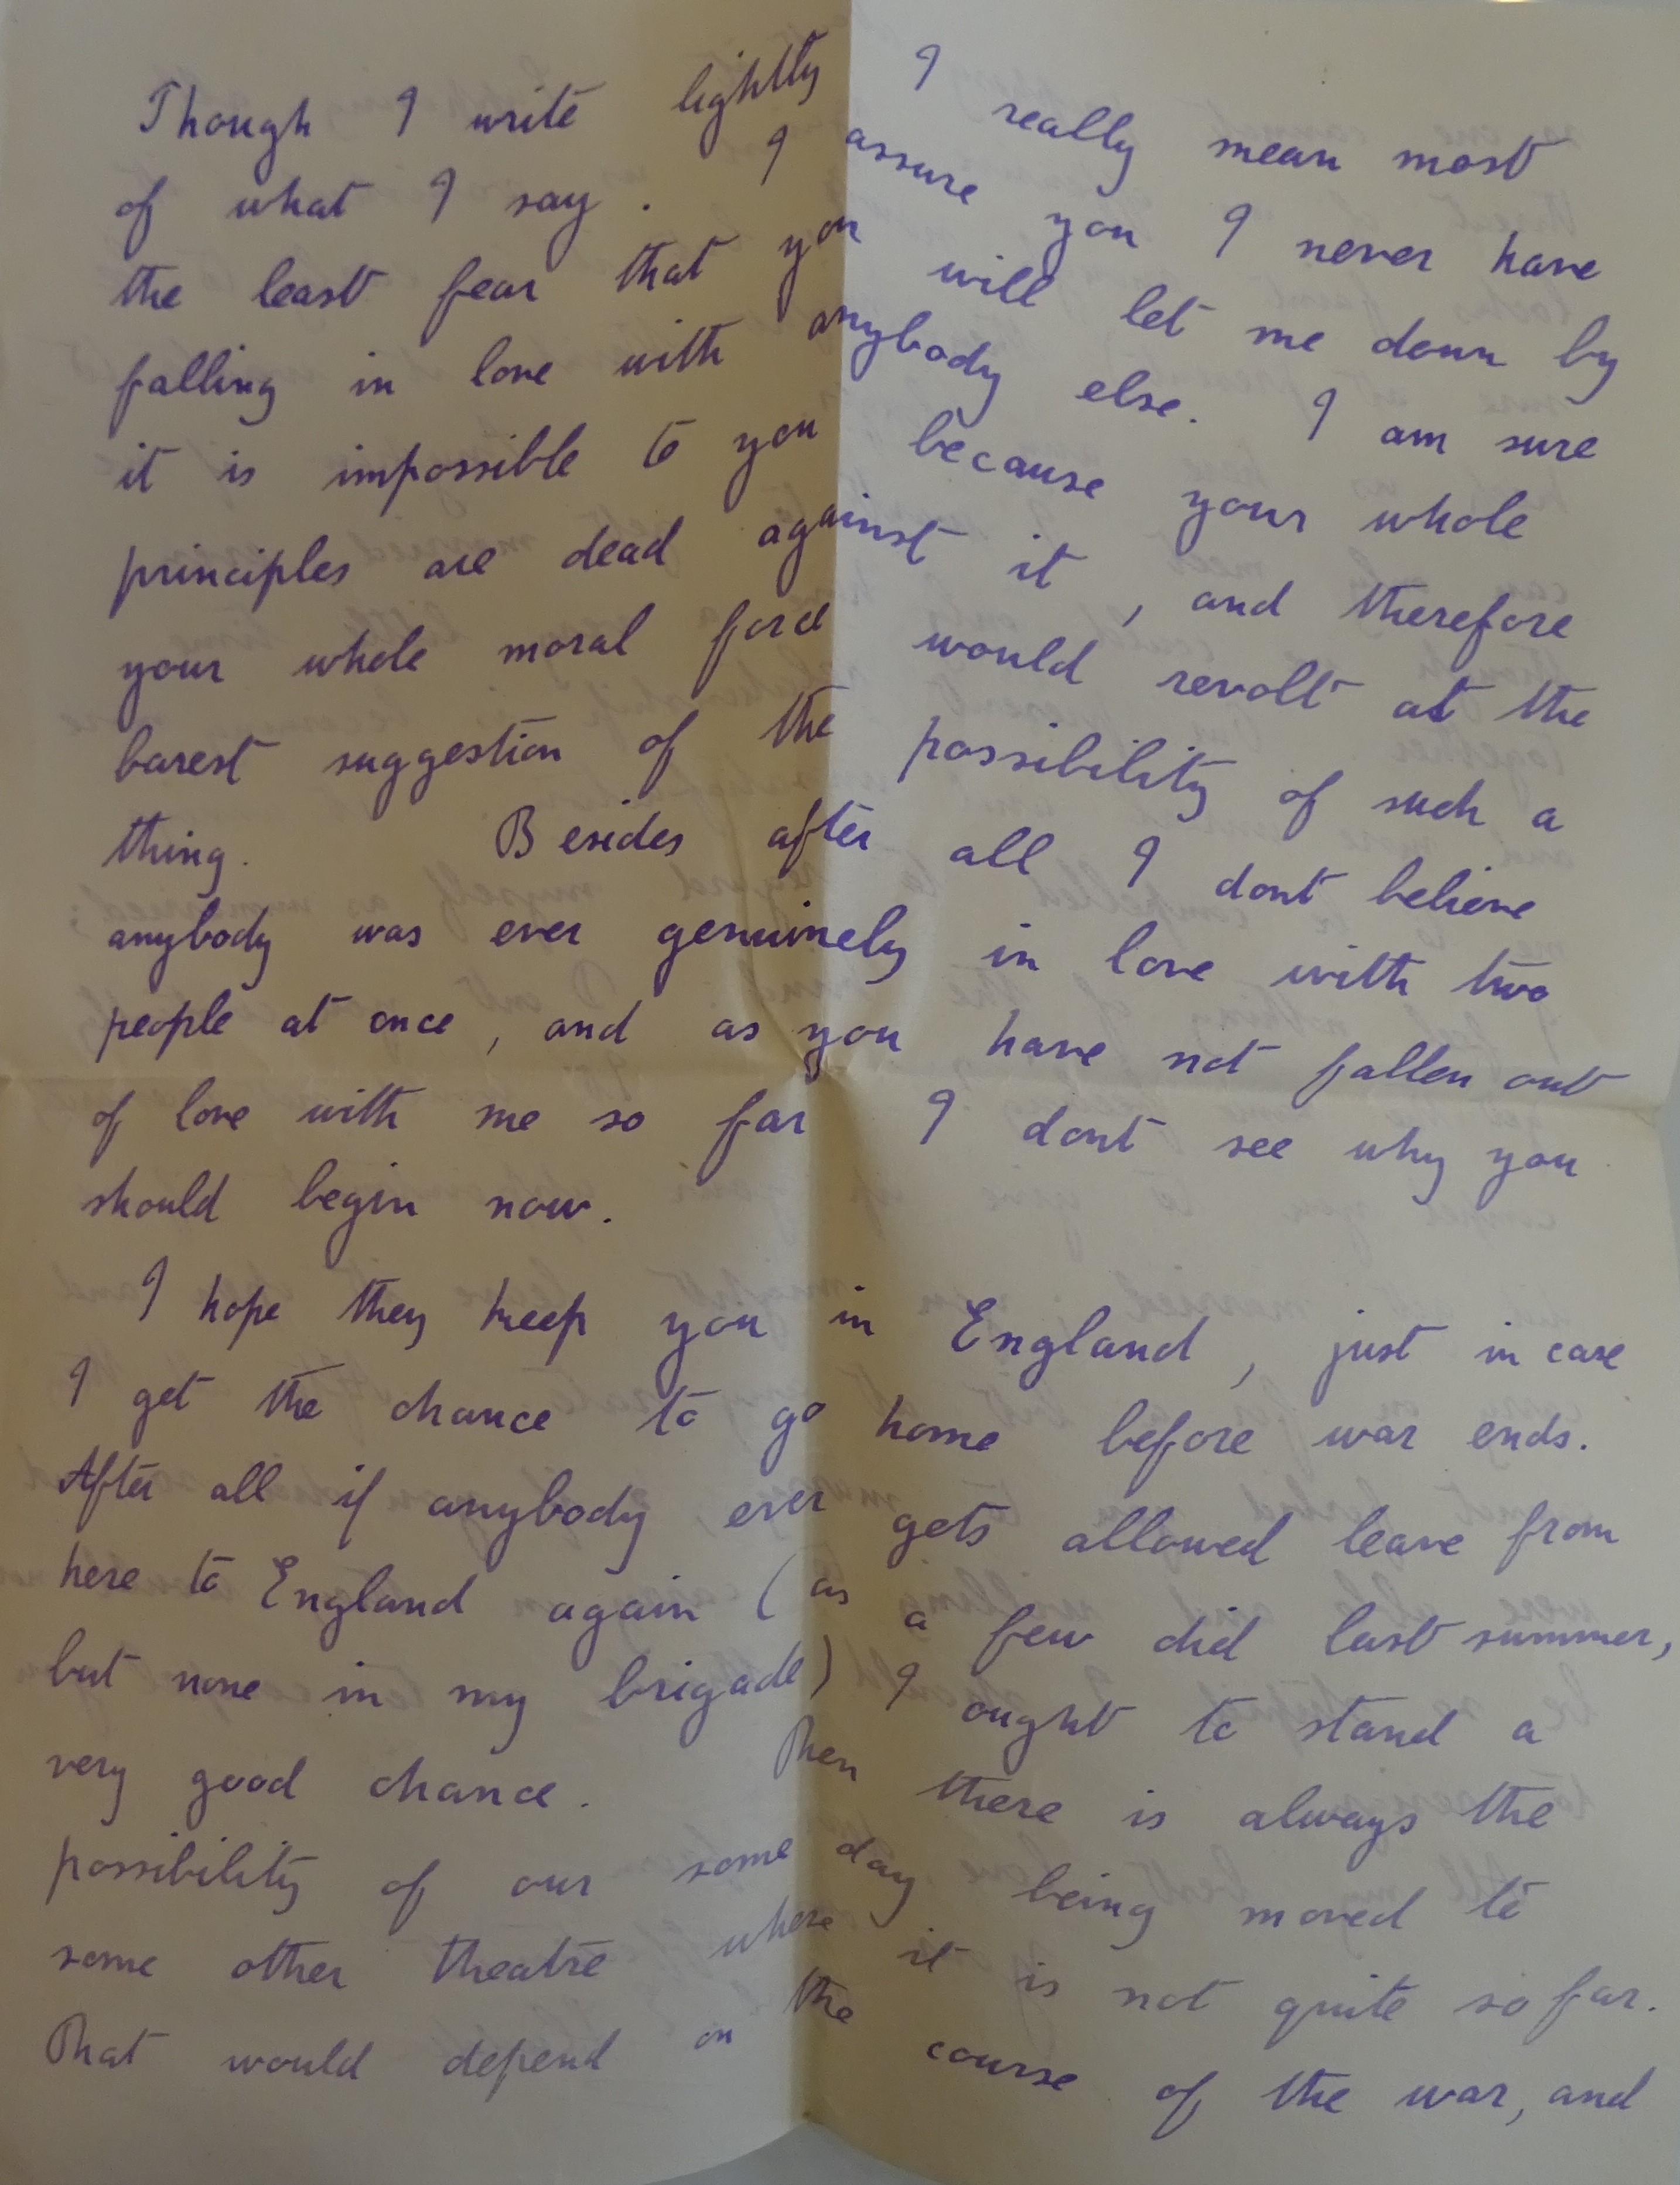 Though I write lightly I really mean most
of what I say. I assure you I never have
the least fear that you will let me down by
falling in love with anybody else. I am sure
it is impossible to you because your whole
principles are dead against it, and therefore
your whole moral force would revolt at the
barest suggestion of the possibility of such a
thing. Besides after all I dont believe
anybody was ever genuinely in love with two
people at once, and as you have not fallen out
of love with me so far I dont see why you
should begin now.
I hope they keep you in England, just in case
I get the chance to go home before war ends.
After all if anybody ever gets allowed leave from
here to England again (as a few did last summer,
but none in my brigade) I ought to stand a
very good chance. Then there is always the
possibility of our some day being moved to
some other theatre where it is not quite so far.
That would depend on the course of the war, and